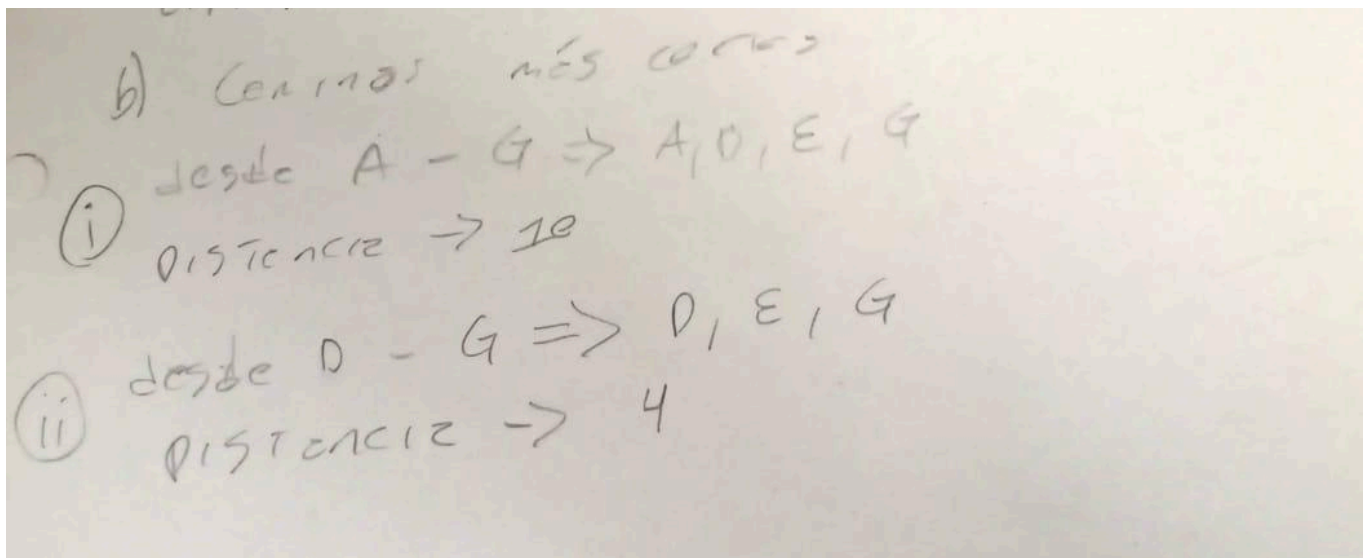 b) Caminos más cortos
desde A - G => A, D, E, G
i Distancia -> 10
desde D - G => D, E, G
ii Distancia -> 4